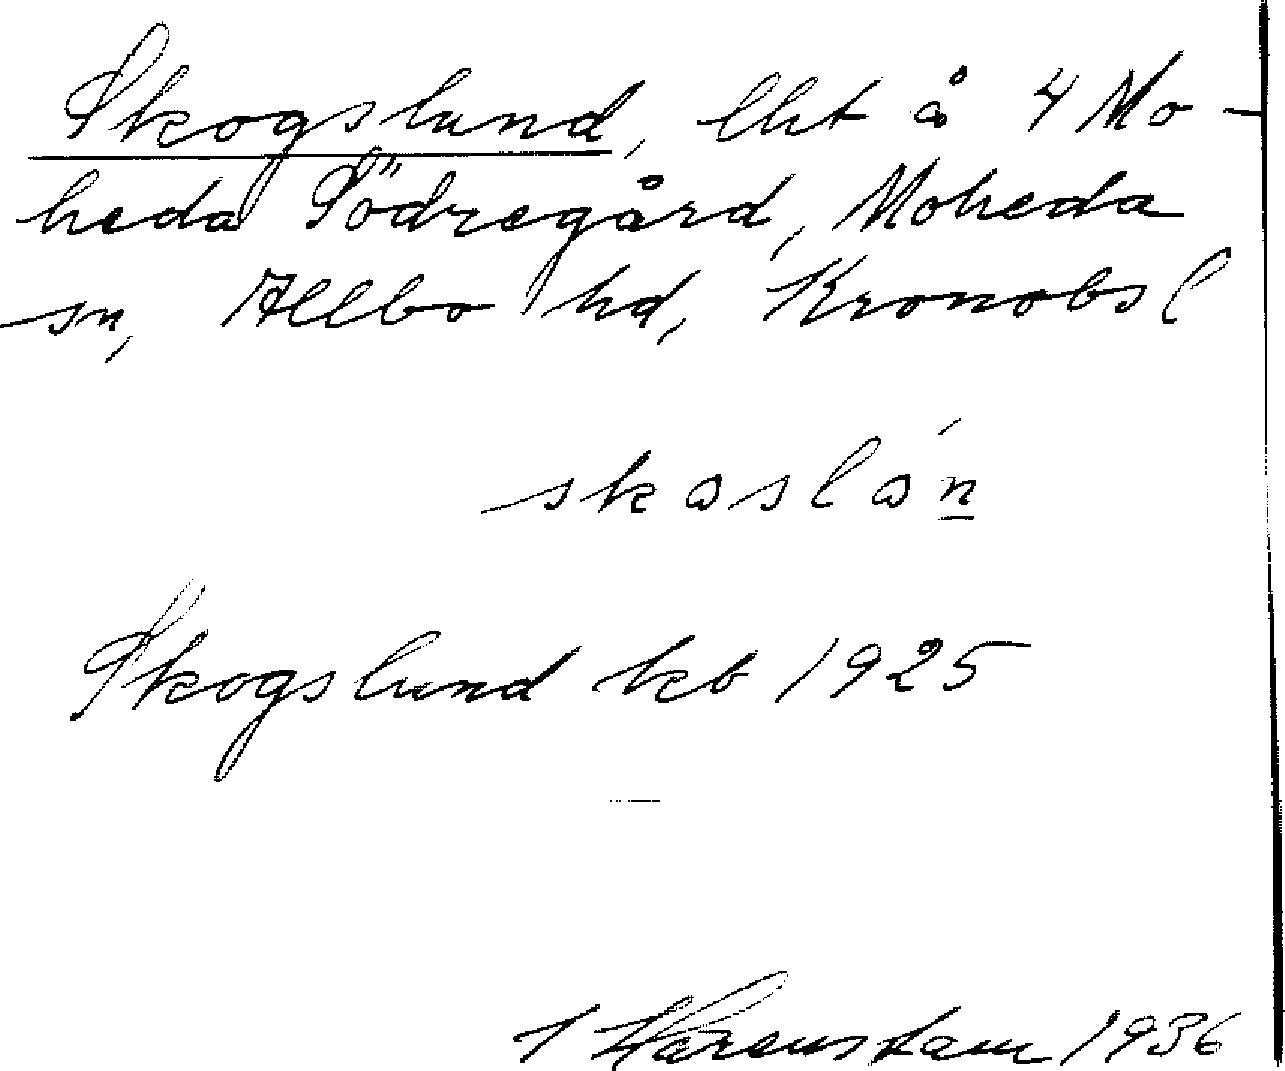 Skogslund, lht å 4 Mo-
heda Södregård, Moheda
sn, Allbo hd, Kronobsl
skɷslɷ́n̲
Skogslund kb 1925
Harenstam 1936